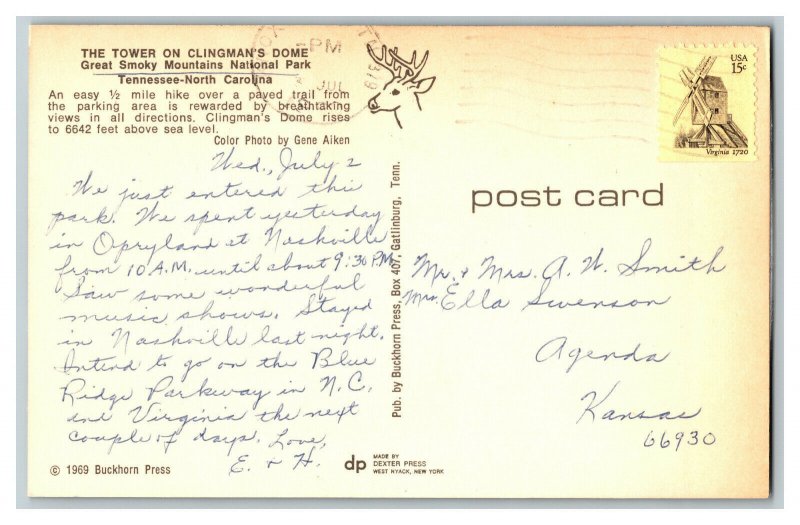 THE TOWER ON CLINGMAN'S DOME
Great Smoky Mountains National Park
Tennessee-North Carolina
An easy ½ mile hike over a paved trail from
the parking area is rewarded by breathtaking
views in all directions. Clingman's Dome rises
to 6642 feet above sea level.
Color Photo by Gene Aiken
Wed., July 2
We just entered this
park. We spent yesterday
in Opryland at Nashville
from 10 A.M. until about 9:30 P.M.
Saw some wonderful
music shows. Stayed
in Nashville last night.
Intend to go on the Blue
Ridge Parkway in N.C.
and Virginia the next
couple of days. Love,
E. + H.
© 1969 Buckhorn Press
Pub. by Buckhorn Press, Box 407, Gatlinburg, Tenn.
dp
MADE BY
DEXTER PRESS
WEST NYACK, NEW YORK
PM
JUL
USA
15c
Virginia 1720
post card
Mr. + Mrs. A. W. Smith
Mrs. Ella Swenson
Agenda
Kansas
66930